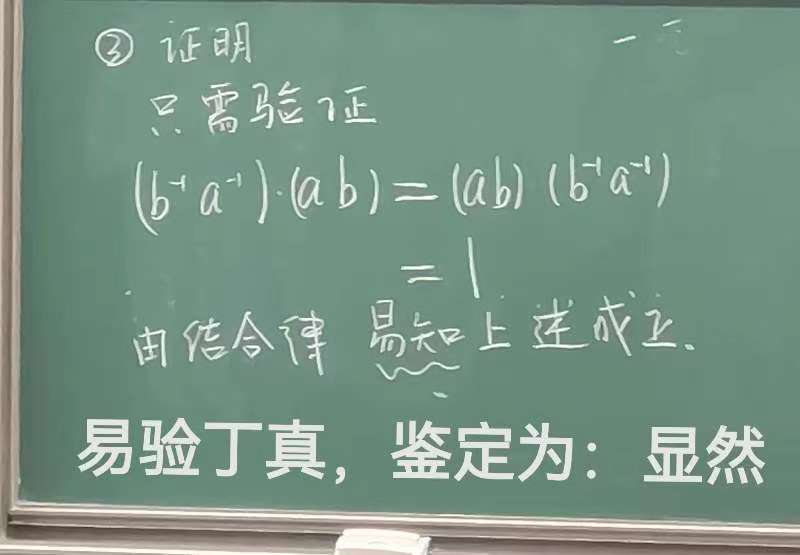 ③ 证明
只需验证
(b⁻¹ a⁻¹)·(ab) = (ab) (b⁻¹a⁻¹)
= 1
由结合律 易知上述成立.
易验丁真，鉴定为：显然